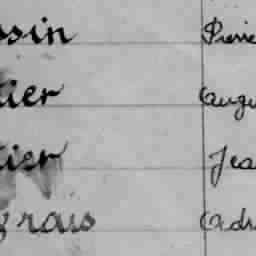 ssin Pierre
tier Augu
tier Jea
grais Adri